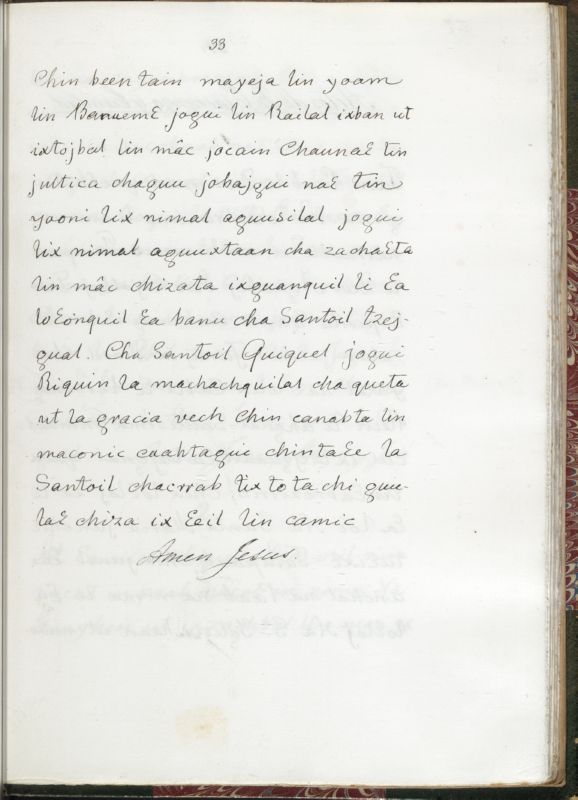 33
Chin been tain mayeja lin yoam
lin BanuemƐ jogui lin Railal ixban ut
ixtojbal lin mâc jocain ChaunaƐ tin
jultica chaguu jobajgui naƐ tin
yooni lix nimal aguusilal jogui
lix nimal aguuxtaan cha zachaƐta
lin mâc chizata ixguanquil li Ɛa
loƐonquil Ɛa banu cha Santoil tzej-
gual. Cha Santoil Quiquel jogui
Riquin la machachquilal cha queta
ut la gracia vech Chin canabta lin
maconic caahtagui chintaƐe la
Santoil chacrrab lix to ta chi guu-
laƐ chiza ix Ɛeil lin camic
Amen Jesus.